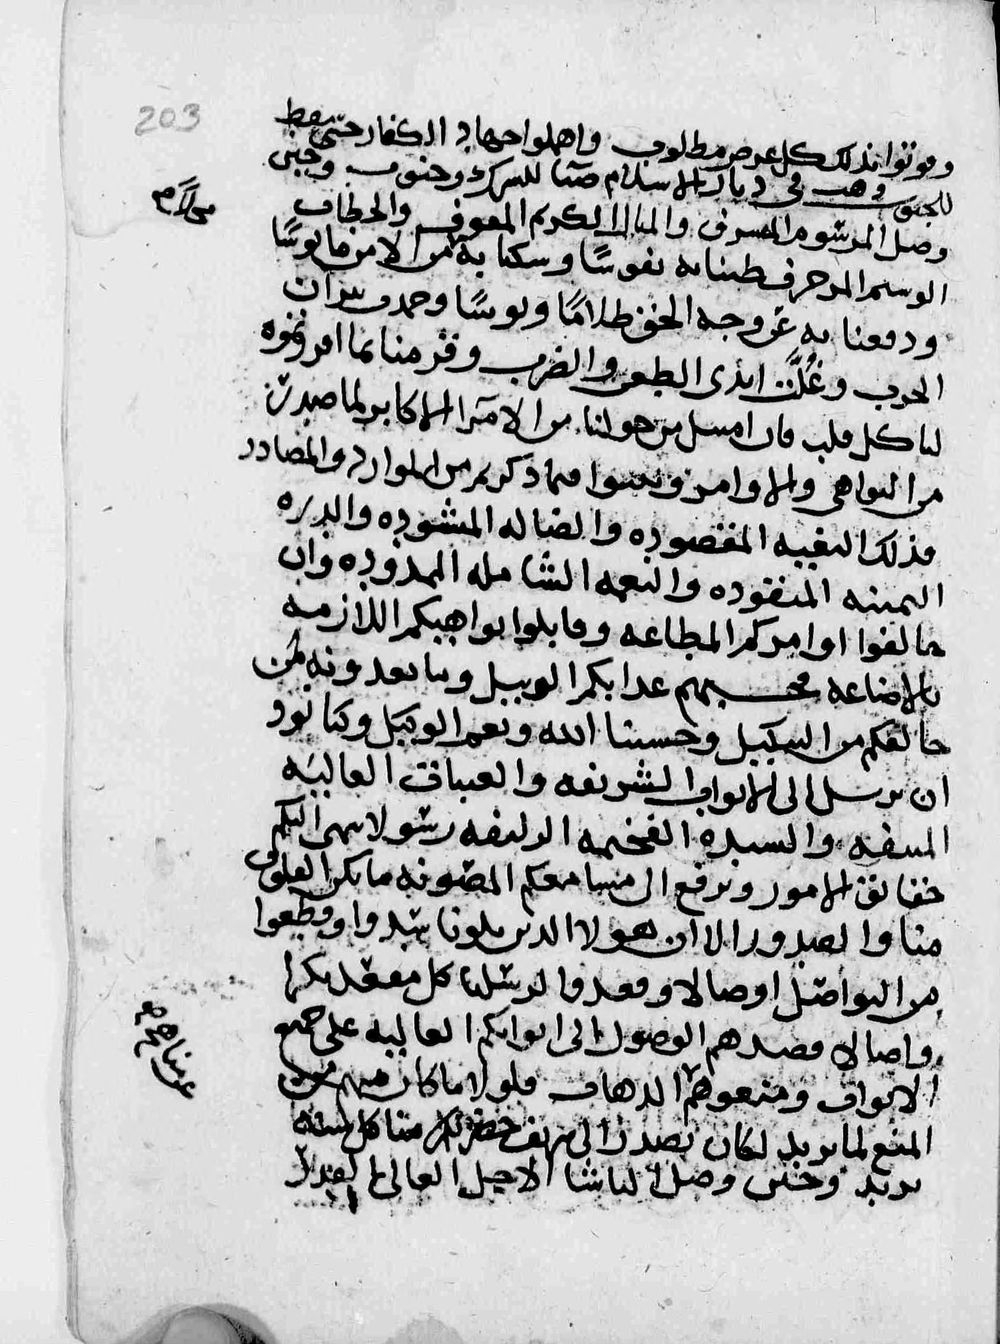 203
وفوتوا بذلك كل عرض مطلوب واهملوا جهاد الكفار حتى سقط
للجنوب وهب في ديار الاسلام صبا للشرك وجنوب وحين
وصل المرسوم المشرف والمثال الكريم المعوف والخطاب
الوسيم المزخرف طبنا به نفوسًا وسكنا به من الامن مانوسًا
ودفعنا به عن وجه الحق ظلامًا وبوسًا وخمدت نيران
الحرب وغُلَّت ايدي الطعن والضرب وقر منا بما امرتموه
لنا كل قلب فان امتثل من حولنا من الامرا الاكابر لما صدر
من النواهي والاوامر وتعبوا فيما ذكر من الموارد والمصادر
فذلك البغيه المقصوده والضاله المنشوده والدره
الثمينه المنقوده والنعمه الشامله الممدوده وان
خالفوا اوامركم المطاعه وقابلوا نواهيكم اللازمه
بالاضاعه فحسبهم عذابكم الوبيل وما بعدونه من
خالفكم من التنكيل وحسبنا الله ونعم الوكيل وكنا نود
ان نرسل الى الابواب الشريفه والعتبات العاليه
المنيفه والسده الفخيمه الوليفه رسولا ينهي اليكم
حقائق الامور ويرفع الى مسامعكم المصونه ما تكن القلوب
منا والصدور الا ان هولا الذين يلونا سدوا وقطعوا
من التواصل اوصالا وقعدوا لرسلنا كل مقعد بكرا
واصالا فصدهم الوصول الى ابوابكم العاليه على جميع
الابواب ومنعوهم الذهاب فلولا ما كان منهم من
المنع لما نريد لكان يصدر الى شريف حضرتكم منا كل سنه
بريد وحين وصل الباشا الاجل العالى القدر